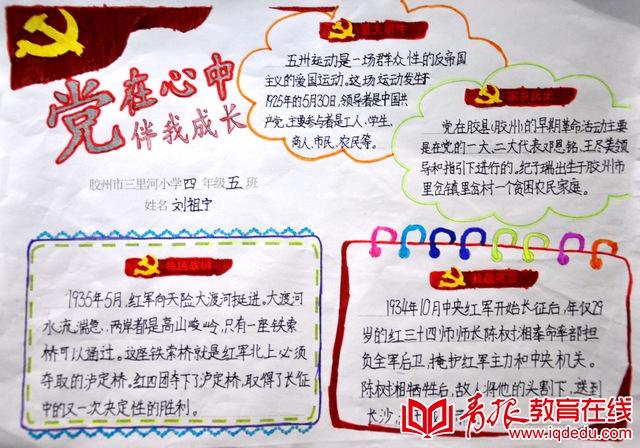 党在心中
伴我成长
胶州市三里河小学四年级五班
姓名 刘祖宁
重大事件
五卅运动是一场群众性的反帝国
主义的爱国运动。这场运动发生于
1925年的5月30日,领导者是中国共
产党,主要参与者是工人、学生、
商人、市民、农民等。
家乡历史
党在胶县(胶州)的早期革命活动主要
是在党的一大、二大代表邓恩铭、王尽美领
导和指引下进行的。纪子瑞出生于胶州市
里岔镇里岔村一个贫困农民家庭。
1935年5月,红军向天险大渡河挺进。大渡河
水流湍急,两岸都是高山峻岭,只有一座铁索
桥可以通过。这座铁索桥就是红军北上必须
夺取的泸定桥。红四团夺下泸定桥,取得了长征
中的又一次决定性的胜利。
1934年10月中央红军开始长征后,年仅29
岁的红三十四师师长陈树湘奉命率部担
负全军后卫,掩护红军主力和中央机关。
陈树湘牺牲后,敌人将他的头割下,送到
长沙,
青报教育在线
www.iqdedu.com